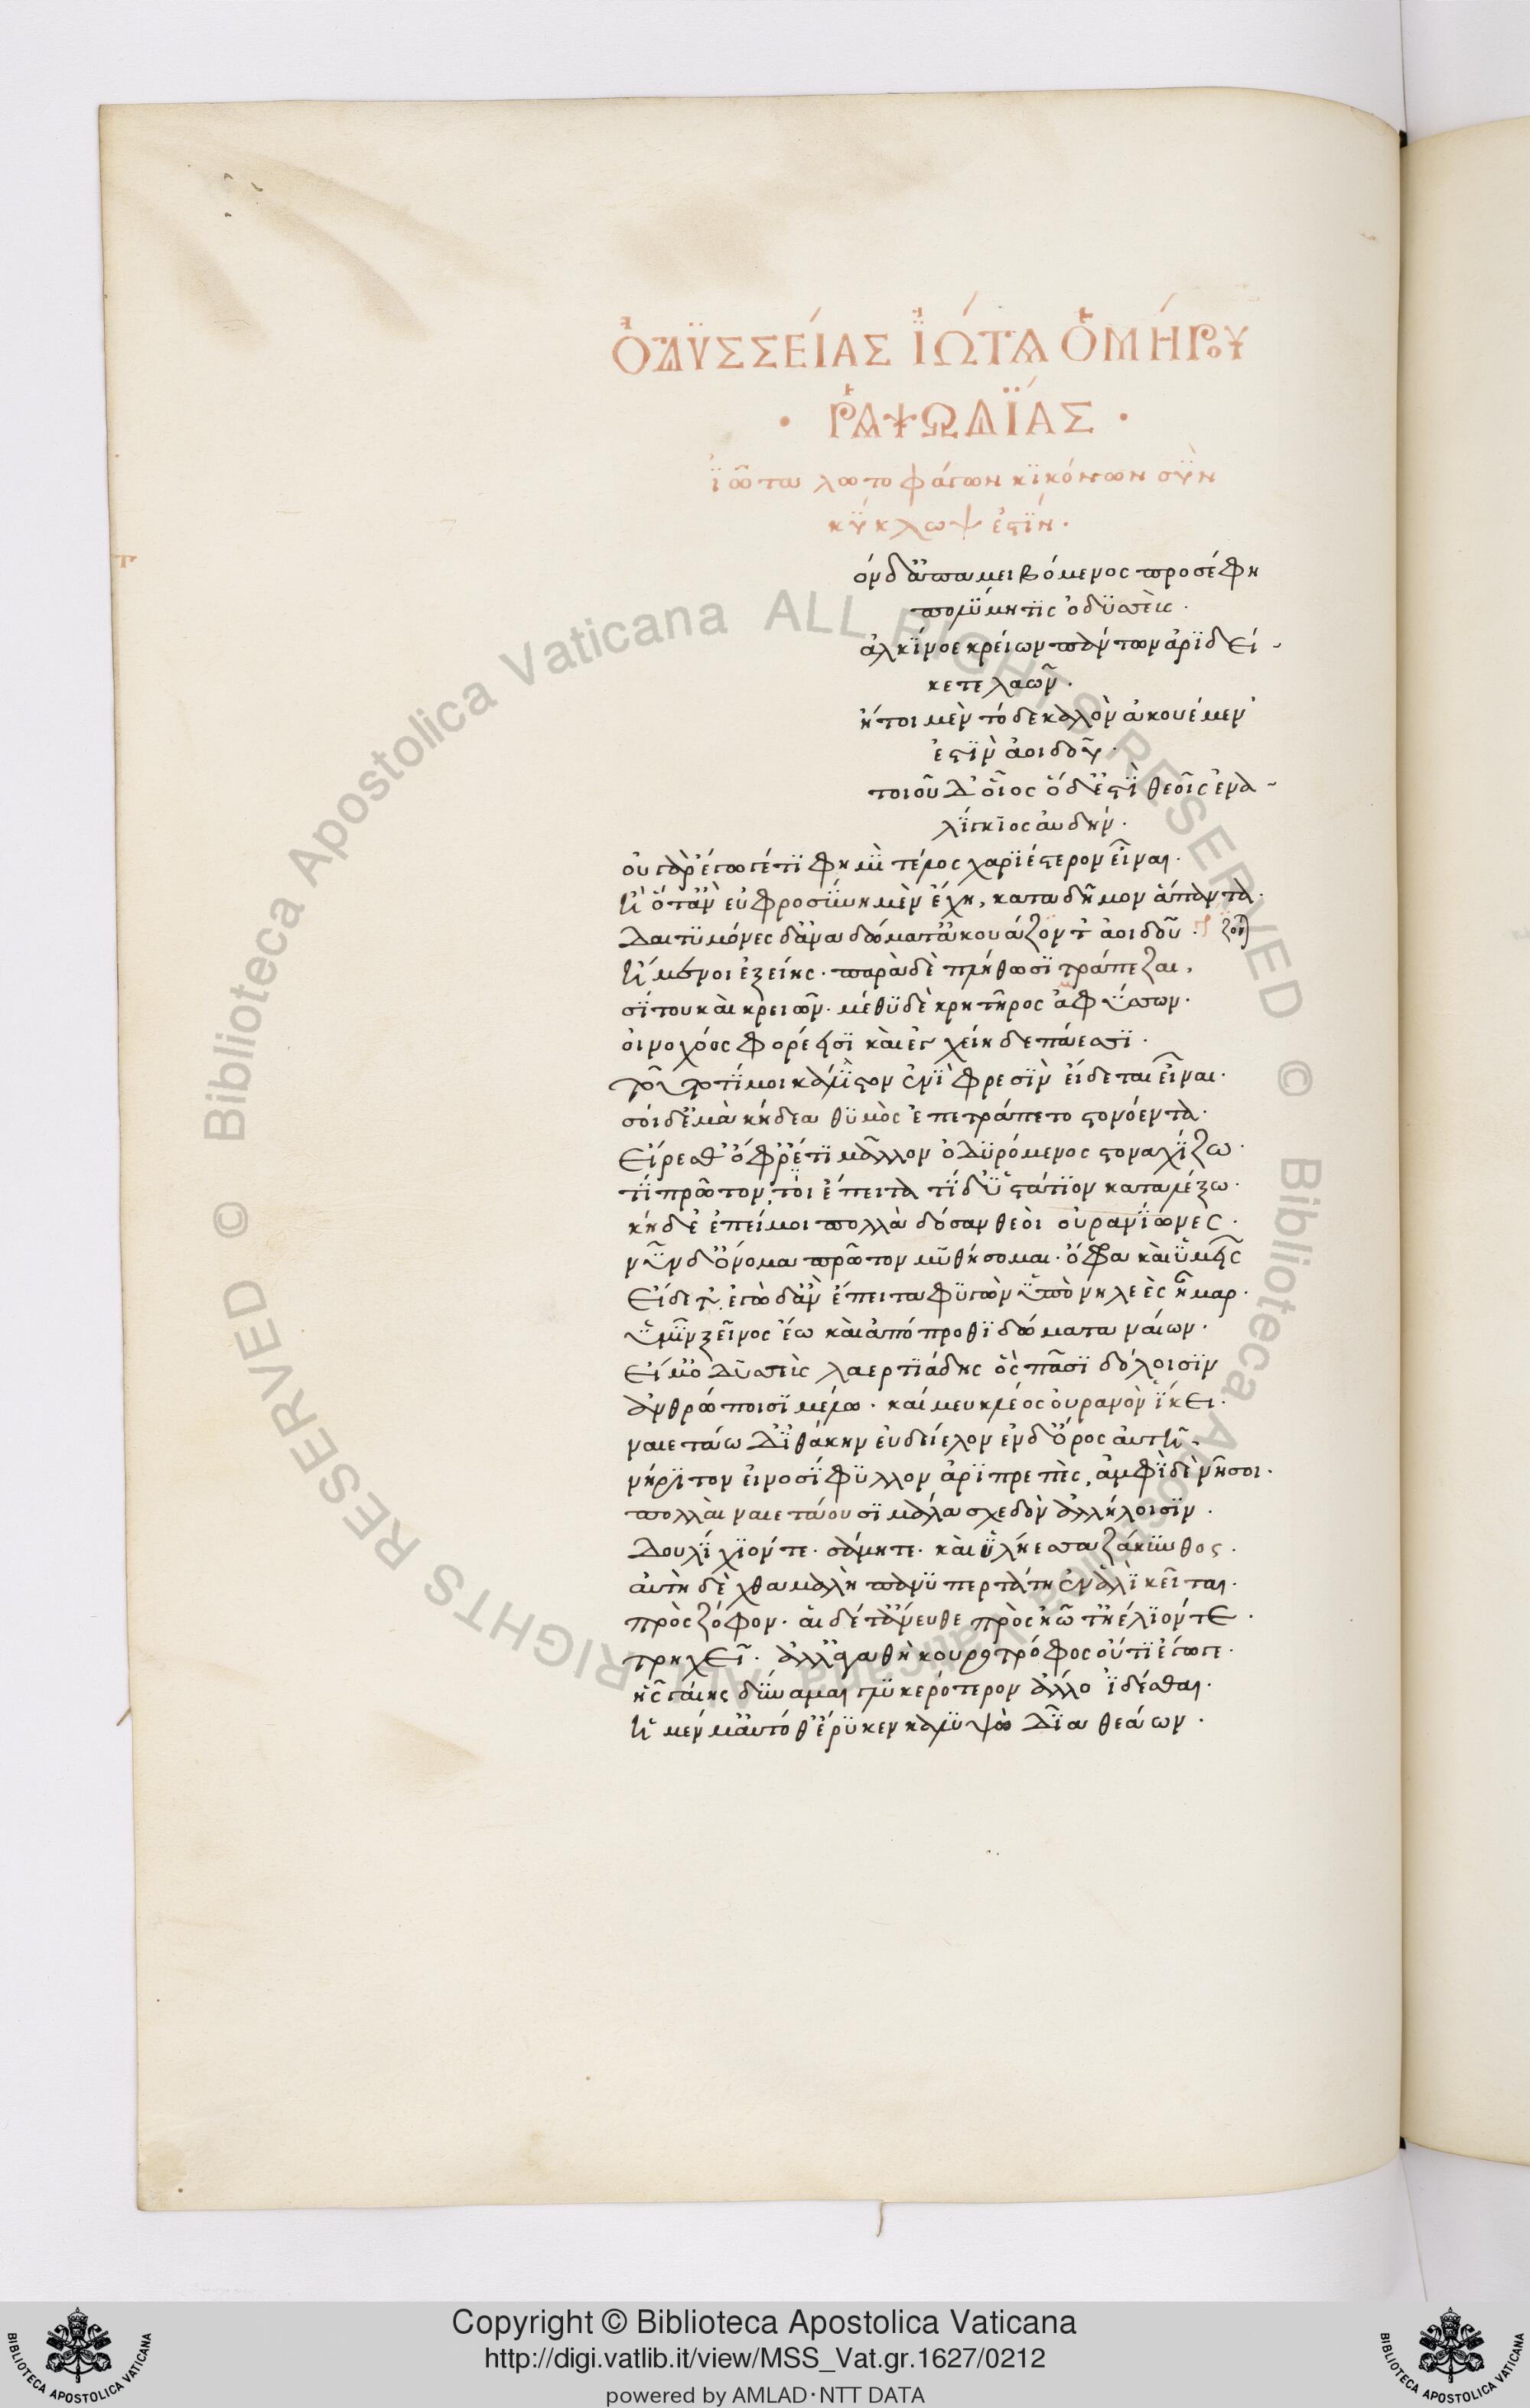 ὈΔΫΣΣΕΊΑΣ ἸΩΤΑ ὉΜΉΡΟΥ
· ῬΑΨΩΔΪΆΣ ·
ἰῶτα λωτοφάγων κϊκόνων σὺν
κύκλωψ ἐστϊν.
όν δ' ἀπαμειβόμενος προσέφη
πολύμητϊς ὀδϋσσεύς.
ἀλκΐνοε κρεῖων πάντων ἀρϊδεί-
κετε λαῶν.
ἤτοι μὲν τόδε καλὸν ἀκουέμεν
ἐστϊν ἀοιδοῦ.
τοιοῦδ' οἷος ὅδ' ἐστϊ θεοῖς ἐνα-
λΐγκϊος αὐδήν.
οὐ γὰρ ἔγωγέ τϊ φημϊ τέλος χαρϊέστερον εἶναι.
ἢ ὅταν εὐφροσύνη μὲν ἔχη, κατα δῆμον ἅπαντα.
Δαιτϋμόνες δ' ἀνα δώματ' ἀκουάζοντ' ἀοιδοῦ.
ἥμενοι ἐξείης. παρὰ δὲ πλήθωσϊ τράπεζαι,
σΐτου καὶ κρειῶν. μέθϋ δὲ κρητῆρος ἀφύσσων.
οἰνοχόος φορέησϊ καὶ ἐγχείη δεπάεσσϊ.
τοῦτό τΐ μοι κάλλϊστον ἐνϊ φρεσϊν εἴδεται εἶναι.
σοὶ δ' ἐμὰ κήδεα θϋμὸς ἐπετράπετο στονόεντα.
Εἴρεσθ' ὄφρ' ἔτϊ μᾶλλον ὀδϋρόμενος στοναχΐζω.
τΐ πρῶτον, τοι ἔπειτα τΐ δ' ὑστάτϊον καταλέξω.
κήδε' ἐπεί μοι πολλὰ δόσαν θεοὶ οὐρανΐωνες.
νῦν δ' ὄνομα πρῶτον μϋθήσομαι. ὄφρα καὶ ὑμεῖς
Εἴδετ', ἐγὼ δ' ἂν ἔπειτα φϋγὼν ὑπὸ νηλεὲς ἦμαρ.
ὑμῖν ξεῖνος ἔω καὶ ἀπόπροθϊ δώματα ναίων.
Εἴμ' ὀδϋσσεὺς λαερτϊάδης ὃς πᾶσϊ δόλοισϊν
ἀνθρώποισϊ μέλω. καί μευ κλέος οὐρανὸν ἵκει.
ναιετάω δ' ἰθάκην εὐδείελον ἐν δ' ὄρος αὐτῆ
νήρϊτον εἰνοσΐφϋλλον ἀρϊπρεπὲς, ἀμφὶ δὲ νῆσοι.
πολλαὶ ναιετάουσϊ μάλα σχεδὸν ἀλλήλοισϊν.
Δουλΐχϊόν τε. σάμη τε. καὶ ὑλήεσσα ζάκϋνθος.
αὐτὴ δὲ χθαμαλὴ πανϋπερτάτη ἐν ἁλϊ κεῖται.
πρὸς ζόφον. αἱ δέ τ' ἄνευθε πρὸς ἠῶ τ' ἠέλϊόν τε.
τρηχεῖ'. ἀλλ' ἀγαθὴ κουροτρόφος οὔτϊ ἔγωγε.
ἧς γαίης δύναμαι γλϋκερότερον ἄλλο ἰδέσθαι.
ἦ μέν μ' αὐτόθ' ἔρϋκεν καλϋψὼ Δῖα θεάων.
Copyright © Biblioteca Apostolica Vaticana
http://digi.vatlib.it/view/MSS_Vat.gr.1627/0212
powered by AMLAD·NTT DATA